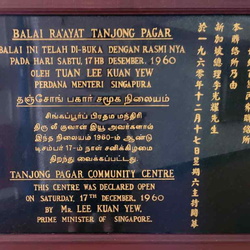 BALAI RA'AYAT TANJONG PAGAR
BALAI INI TELAH DI-BUKA DENGAN RASMI NYA
PADA HARI SABTU, 17HB DESEMBER, 1960
OLEH TUAN LEE KUAN YEW
PERDANA MENTERI SINGAPURA
தஞ்சோங் பகார் சமூக நிலையம்
சிங்கப்பூர்ப் பிரதம மந்திரி
திரு லீ குவான் இயூ அவர்களால்
இந்த நிலையம் 1960-ம் ஆண்டு
டிசம்பர் 17-ம் நாள் சனிக்கிழமை
திறந்து வைக்கப்பட்டது.
TANJONG PAGAR COMMUNITY CENTRE
THIS CENTRE WAS DECLARED OPEN
ON SATURDAY, 17TH DECEMBER, 1960
BY MR. LEE KUAN YEW,
PRIME MINISTER OF SINGAPORE.
新加坡總理李光耀先生
於一九六〇年十二月十七日星期六主持開幕